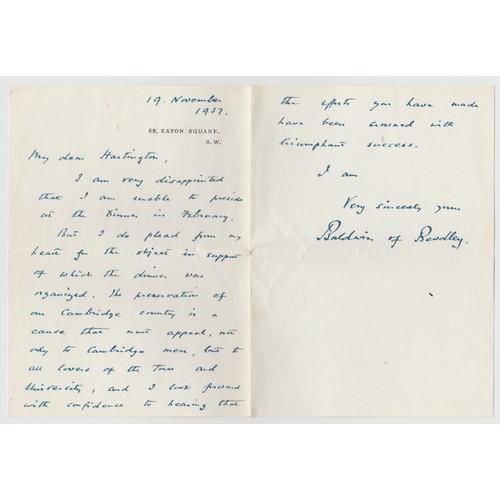 19. November
1937.
69, EATON SQUARE,
S.W.
My dear Hartington,
I am very disappointed
that I am unable to preside
at the Dinner in February.
But I do plead from my
heart for the object in support
of which the dinner was
organized. The preservation of
our Cambridge country is a
cause that must appeal, not
only to Cambridge men, but to
all lovers of the Town and
University, and I look forward
with confidence to hearing that
the efforts you have made
have been crowned with
triumphant success.
I am
Very sincerely yours
Baldwin of Bewdley.